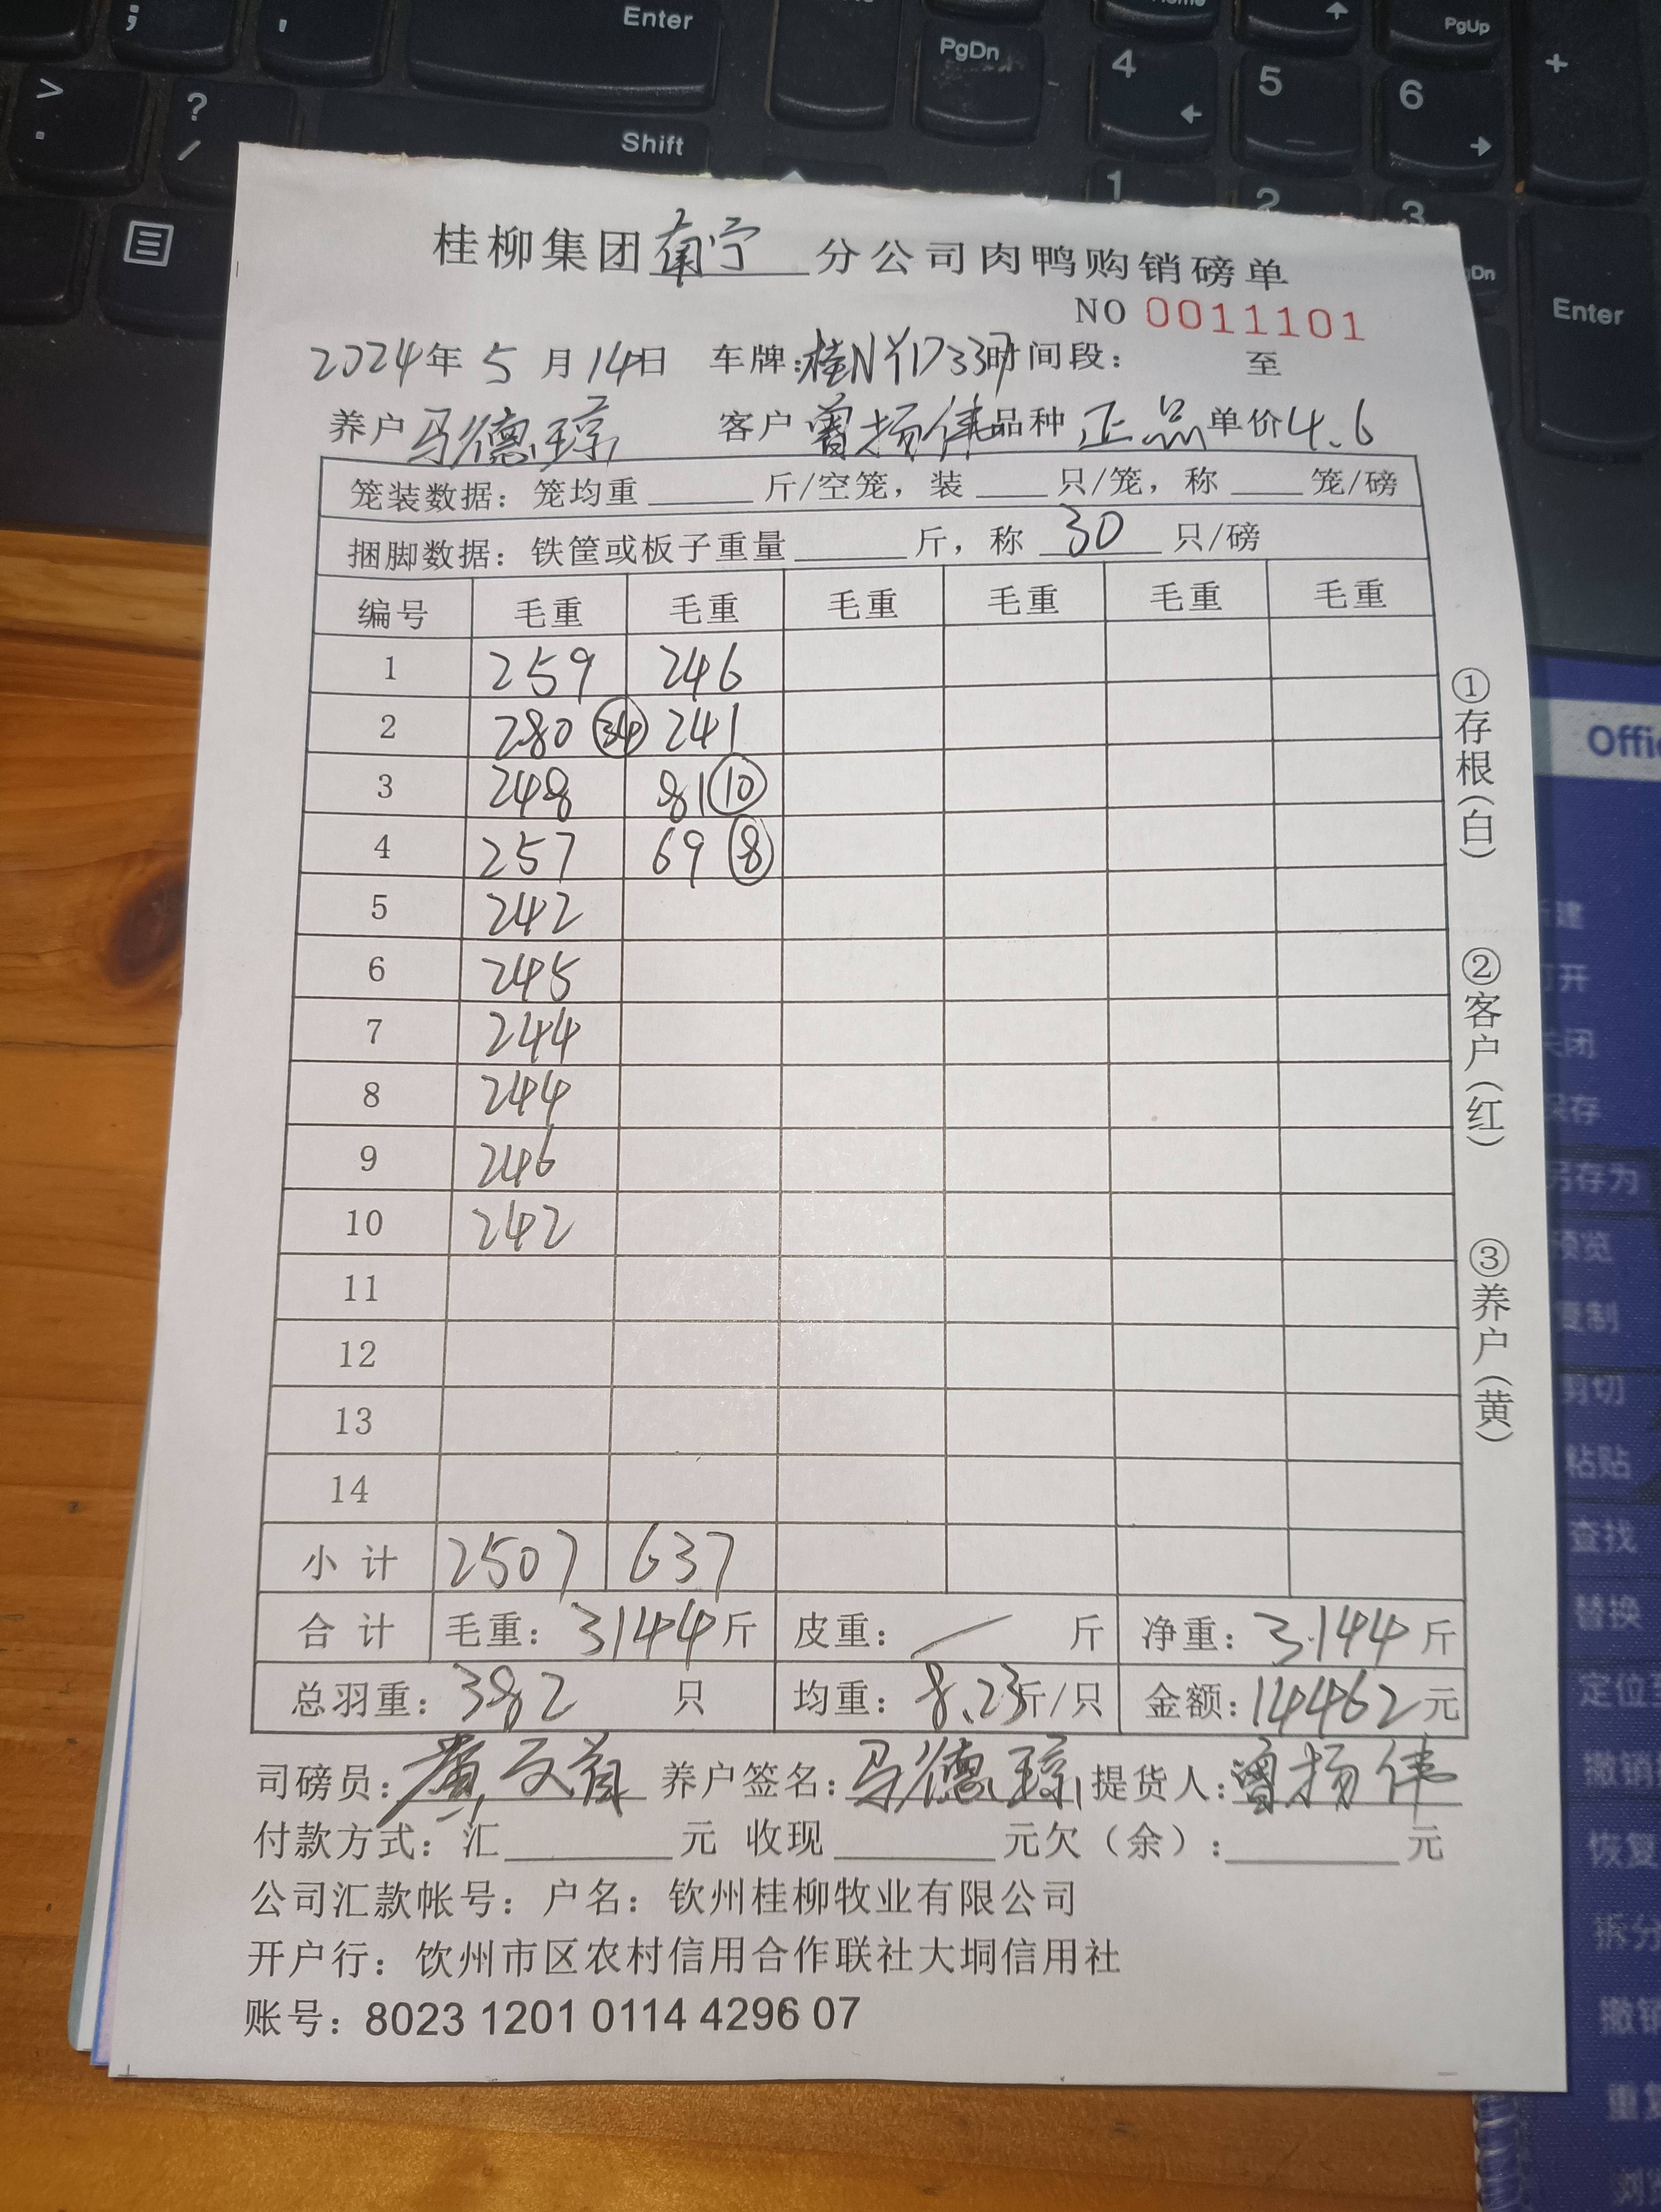 ; , Enter Home PgDn 4 5 6 PgUp +
> . ? / Shift 1 2 3 Enter
桂柳集团南宁分公司肉鸭购销磅单
NO 0011101
2024年5月14日 车牌:桂NYD337时间段: 至
养户马德琼 客户曾扬伟品种正品单价4.6
笼装数据：笼均重 斤/空笼，装 只/笼，称 笼/磅
捆脚数据：铁筐或板子重量 斤，称 30 只/磅
编号 毛重 毛重 毛重 毛重 毛重 毛重
1 259 246
2 280 (34) 241
3 248 81 (10)
4 257 69 (8)
5 242
6 245
7 244
8 244
9 246
10 242
11
12
13
14
小计 2507 637
合计 毛重：3144斤 皮重：/ 斤 净重：3144斤
总羽重：382 只 均重：8.23斤/只 金额：14462元
司磅员： 养户签名：马德琼 提货人：曾扬伟
付款方式：汇 元 收现 元欠（余）: 元
公司汇款帐号：户名：钦州桂柳牧业有限公司
开户行：饮州市区农村信用合作联社大垌信用社
账号：8023 1201 0114 4296 07
①存根（白）
②客户（红）
③养户（黄）
打开
关闭
保存
另存为
预览
复制
剪切
粘贴
查找
替换